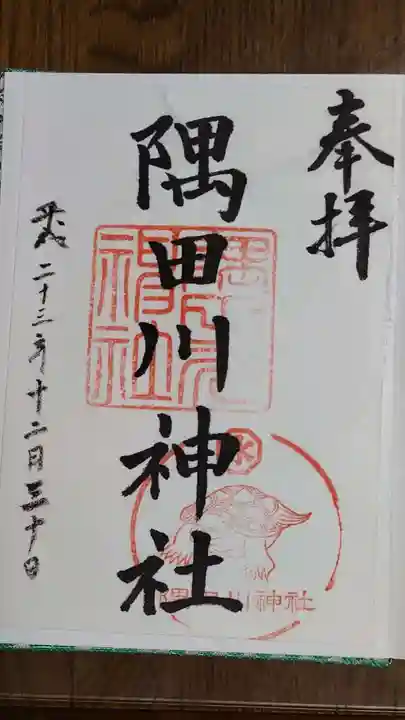 奉拝
隅田川神社
平成二十三年十二月三十日
隅田川神社